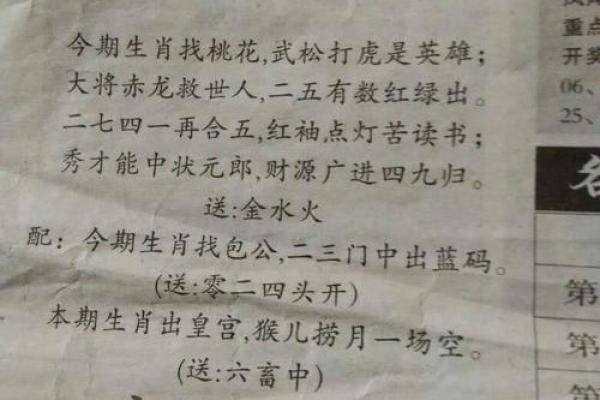 今期生肖找桃花,武松打虎是英雄;
大将赤龙救世人,二五有数红绿出。
二七四一再合五,红袖点灯苦读书;
秀才能中状元郎,财源广进四九归。
送:金水火
配:今期生肖找包公,二三门中出蓝码。
(送:零二四头开)
本期生肖出皇宫,猴儿捞月一场空。
(送:六畜中)
重点
开奖
06、
25、
第
第